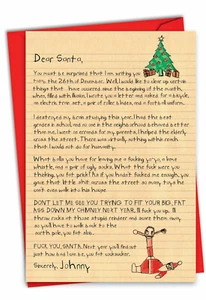 Dear Santa,
You must be surprised that I'm writing you
today, the 26th of December. Well, I would like to clear up certain
things that have occurred since the beginning of the month,
when, filled with illusion, I wrote you a letter and asked for a bicycle,
an electric train set, a pair of roller blades, and a football uniform.
I destroyed my brain studying this year. I had the best
grades in school, and no one in the neighborhood behaved better
than me. I went on errands for my parents, I helped the elderly
cross the street. There was virtually nothing within reach
that I would not do for humanity.
What balls you have for leaving me a fucking yo-yo, a lame
whistle, and a pair of ugly socks. What the fuck were you
thinking, you fat prick! As if you hadn't fucked me enough, you
gave that little shit across the street so many toys he
can't even walk into his house!
DON'T LET ME SEE YOU TRYING TO FIT YOUR BIG, FAT
ASS DOWN MY CHIMNEY NEXT YEAR. I'll fuck you up. I'll
throw rocks at those stupid reindeer and scare them away
so you'll have to walk back to the
north pole, you fat
FUCK YOU, SANTA. Next year you'll find out
just how bad I can be, you fat
Sincerely, Johnny